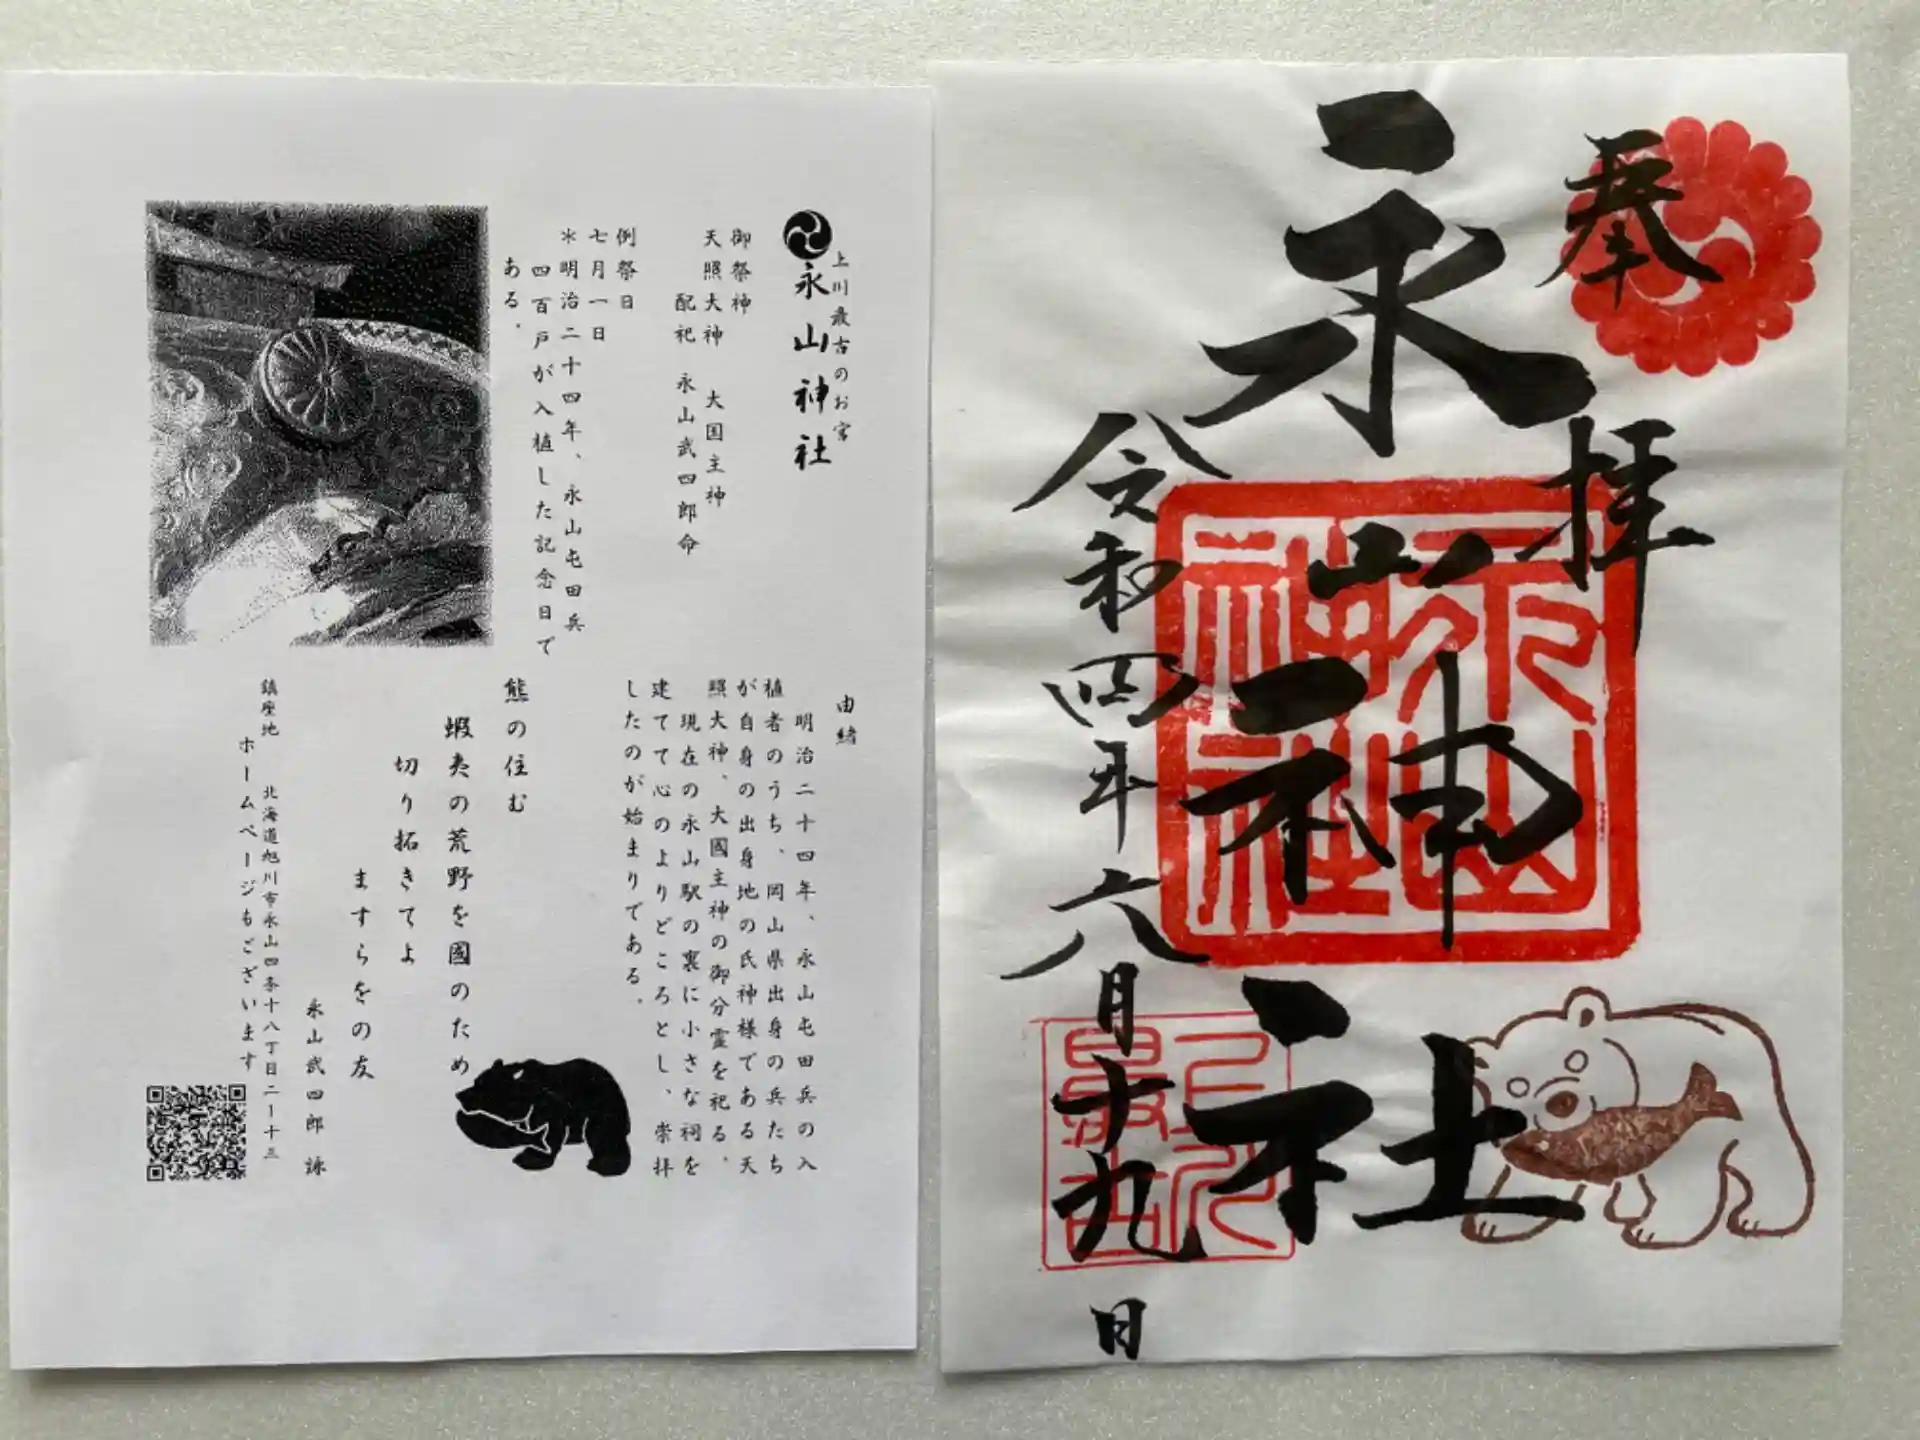 上川最古のお宮
永山神社
御祭神
天照大神 大国主神
配祀 永山武四郎命
例祭日
七月一日
＊明治二十四年、永山屯田兵
四百戸が入植した記念日で
ある．
由緒
明治二十四年、永山屯田兵の入
植者のうち、岡山県出身の兵たち
が自身の出身地の氏神様である天
照大神、大國主神の御分霊を祀る．
現在の永山駅の裏に小さな祠を
建てて心のよりどころとし、崇拝
したのが始まりである．
熊の住む
蝦夷の荒野を國のため
切り拓きてよ
ますらをの友
永山武四郎 詠
鎮座地 北海道旭川市永山四条十八丁目二ー十三
ホームページもございます
奉拝
永山神社
永山神社
令和四年六月十九日
上川最古